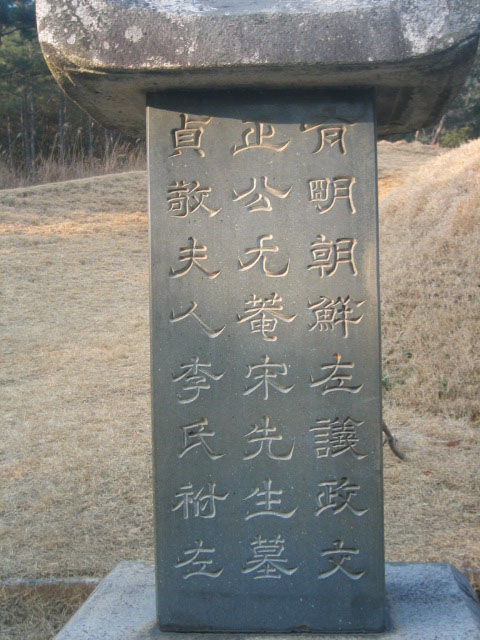 有明朝鮮左議政文
正公尤菴宋先生墓
貞敬夫人李氏祔左